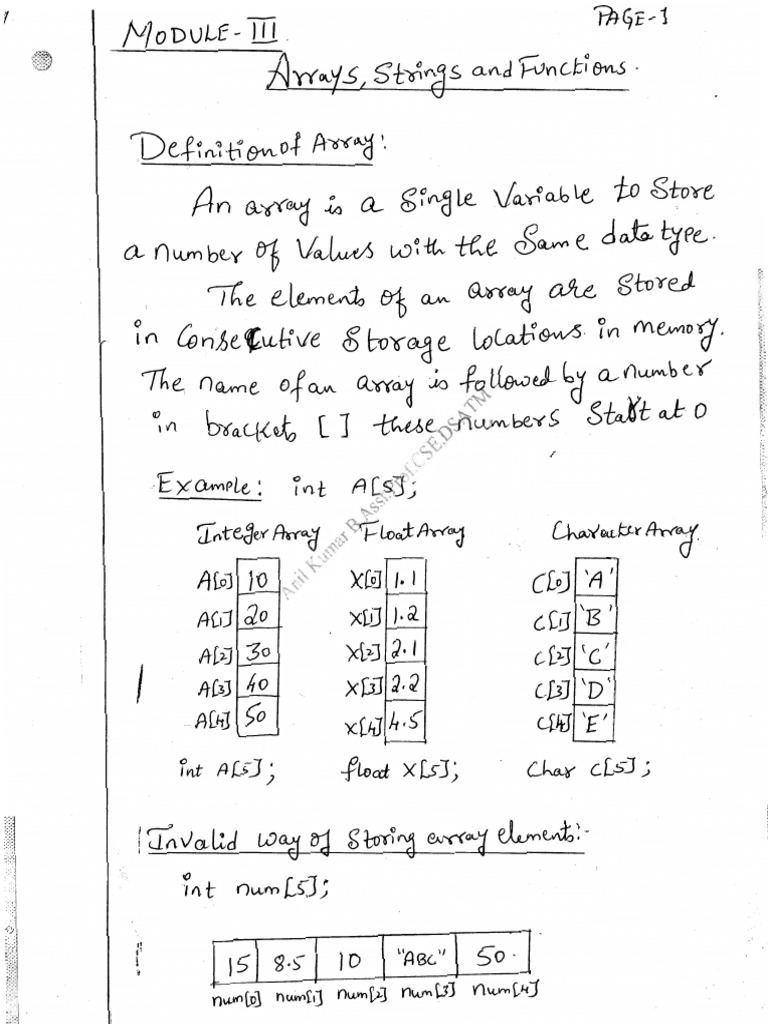 PAGE-1
MODULE-III
Arrays, Strings and Functions.
Definition of Array:
An array is a Single Variable to Store
a number of Values with the Same data type.
The elements of an array are Stored
in Consecutive Storage locations in memory.
The name of an array is followed by a number
in brackets [ ] these numbers Start at 0
Anil Kumar B Asst.Prof.CSE.DSATM
Example: int A[5];
Integer Array Float Array Character Array
A[0] 10 X[0] 1.1 C[0] 'A'
A[1] 20 X[1] 1.2 C[1] 'B'
A[2] 30 X[2] 2.1 C[2] 'C'
A[3] 40 X[3] 2.2 C[3] 'D'
A[4] 50 X[4] 4.5 C[4] 'E'
int A[5]; float X[5]; Char C[5];
Invalid way of Storing array elements:-
int num[5];
15 8.5 10 "ABC" 50.
num[0] num[1] num[2] num[3] num[4]